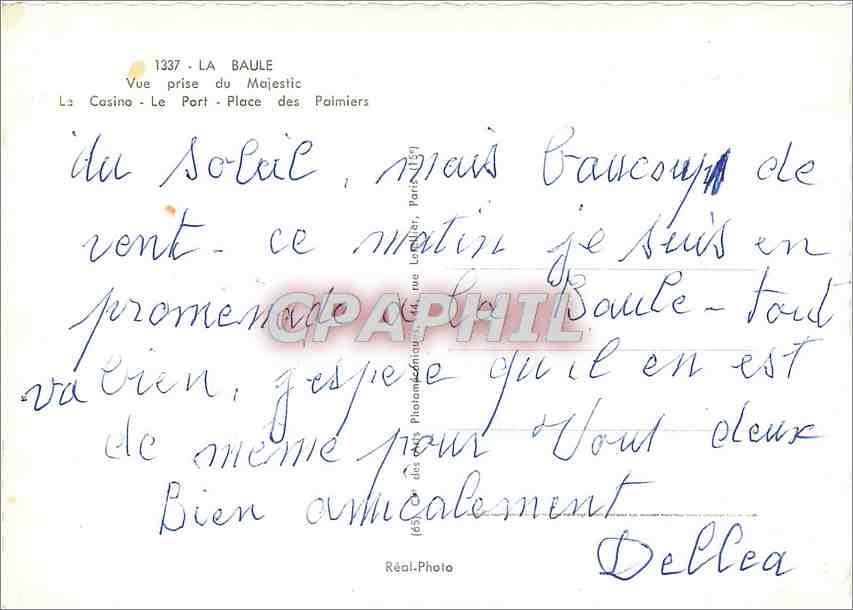 1337 - LA BAULE
Vue prise du Majestic
Le Casino - Le Port - Place des Palmiers
du soleil, mais baucoup de
vent - ce matin je suis en
promenade a la Baule - tout
va bien, j'espere qu'il en est
de même pour Vous deux
Bien amicalement
Dellea
(65) Cie des Arts Photomécaniques, 44, rue Letellier, Paris (15e)
Réal-Photo
CPAPHIL